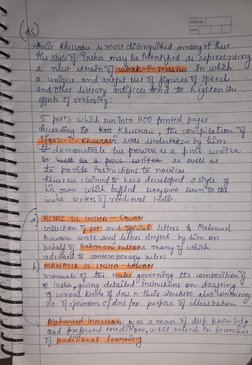 (AS)
PAGE NO.
DATE
Amir Khusrau is most distinguished amongst these
His style of Insha may be identified as representing
a new strain of sabak-i-masnu in which
a unique and artful use of figures of speech
and other literary artifices tend to heighten the
effect of verbosity
5 parts which run into 1100 printed pages
According to Khusrau, the compilation of
Ijaz-i-Khusravi was undertaken by him
to demonstrate his prowess as a prose writer
as well as a prose writer as well as
to provide instructions to novices
Khusrau claimed to have developed a style of
his own which baffled everyone even to the
insha writers of medieval India
a) RIYAZ UL INSHA - GAWAN
collection of pvt and official letters by Mahmud
Gawan wrote and letters drafted by him on
behalf of bahmani sultans many of which
adressed to contemporary rulers
b) MANAZIR UL INSHA - GAWAN
manuals of the rules governing the composition of
Insha, giving detailed instructions on drafting
of various kinds of docs n their structure also containing
no. of specimen of docs for purpose of illustration
Mahmud Gawan was a man of deep knowledge
and profound erudition, well versed in branches
of traditional learning